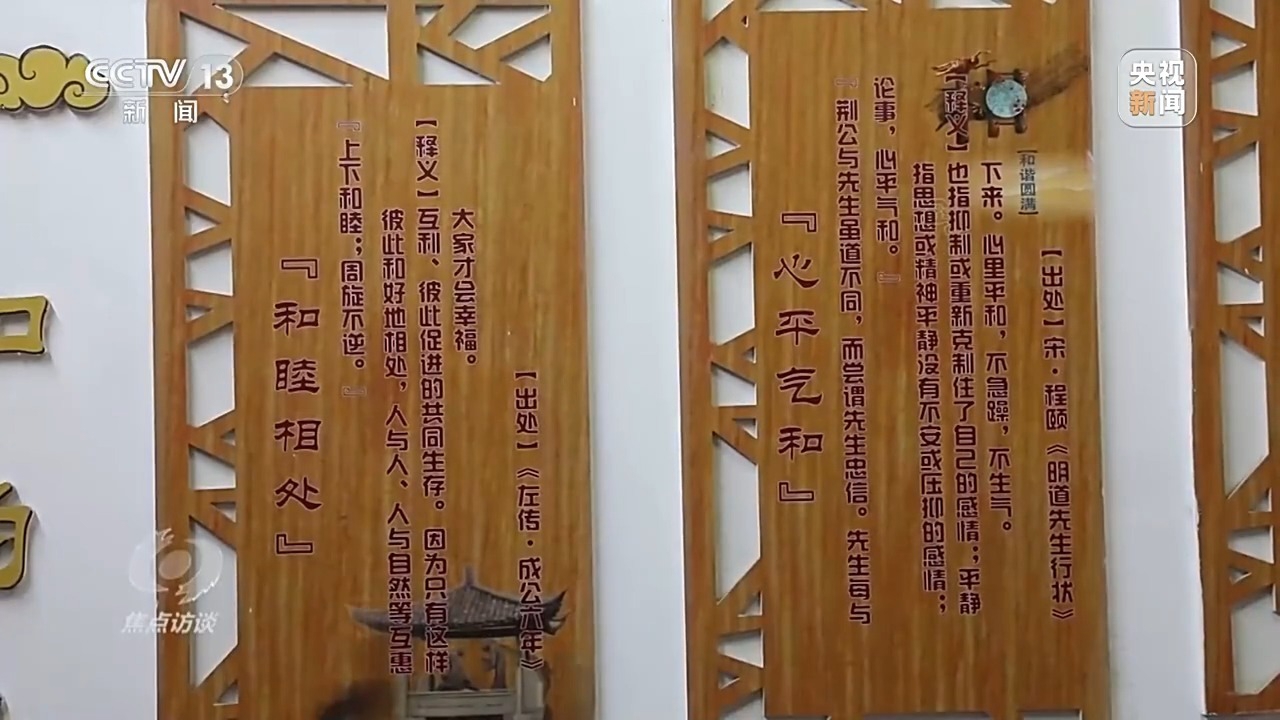 CCTV 13
新闻
央视
新闻
『和睦相处』
『上下和睦;周旋不逆。』
彼此和好地相处,人与人、人与自然等互惠
【释义】互利、彼此促进的共同生存。因为只有这样
大家才会幸福。
【出处】《左传·成公六年》
『心平气和』
『荆公与先生虽道不同,而尝谓先生忠信。先生每与
论事,心平气和。』
指思想或精神平静没有不安或压抑的感情;
【释义】也指抑制或重新克制住了自己的感情;平静
下来。心里平和,不急躁,不生气。
【和谐圆满】
【出处】宋·程颐《明道先生行状》
焦点访谈